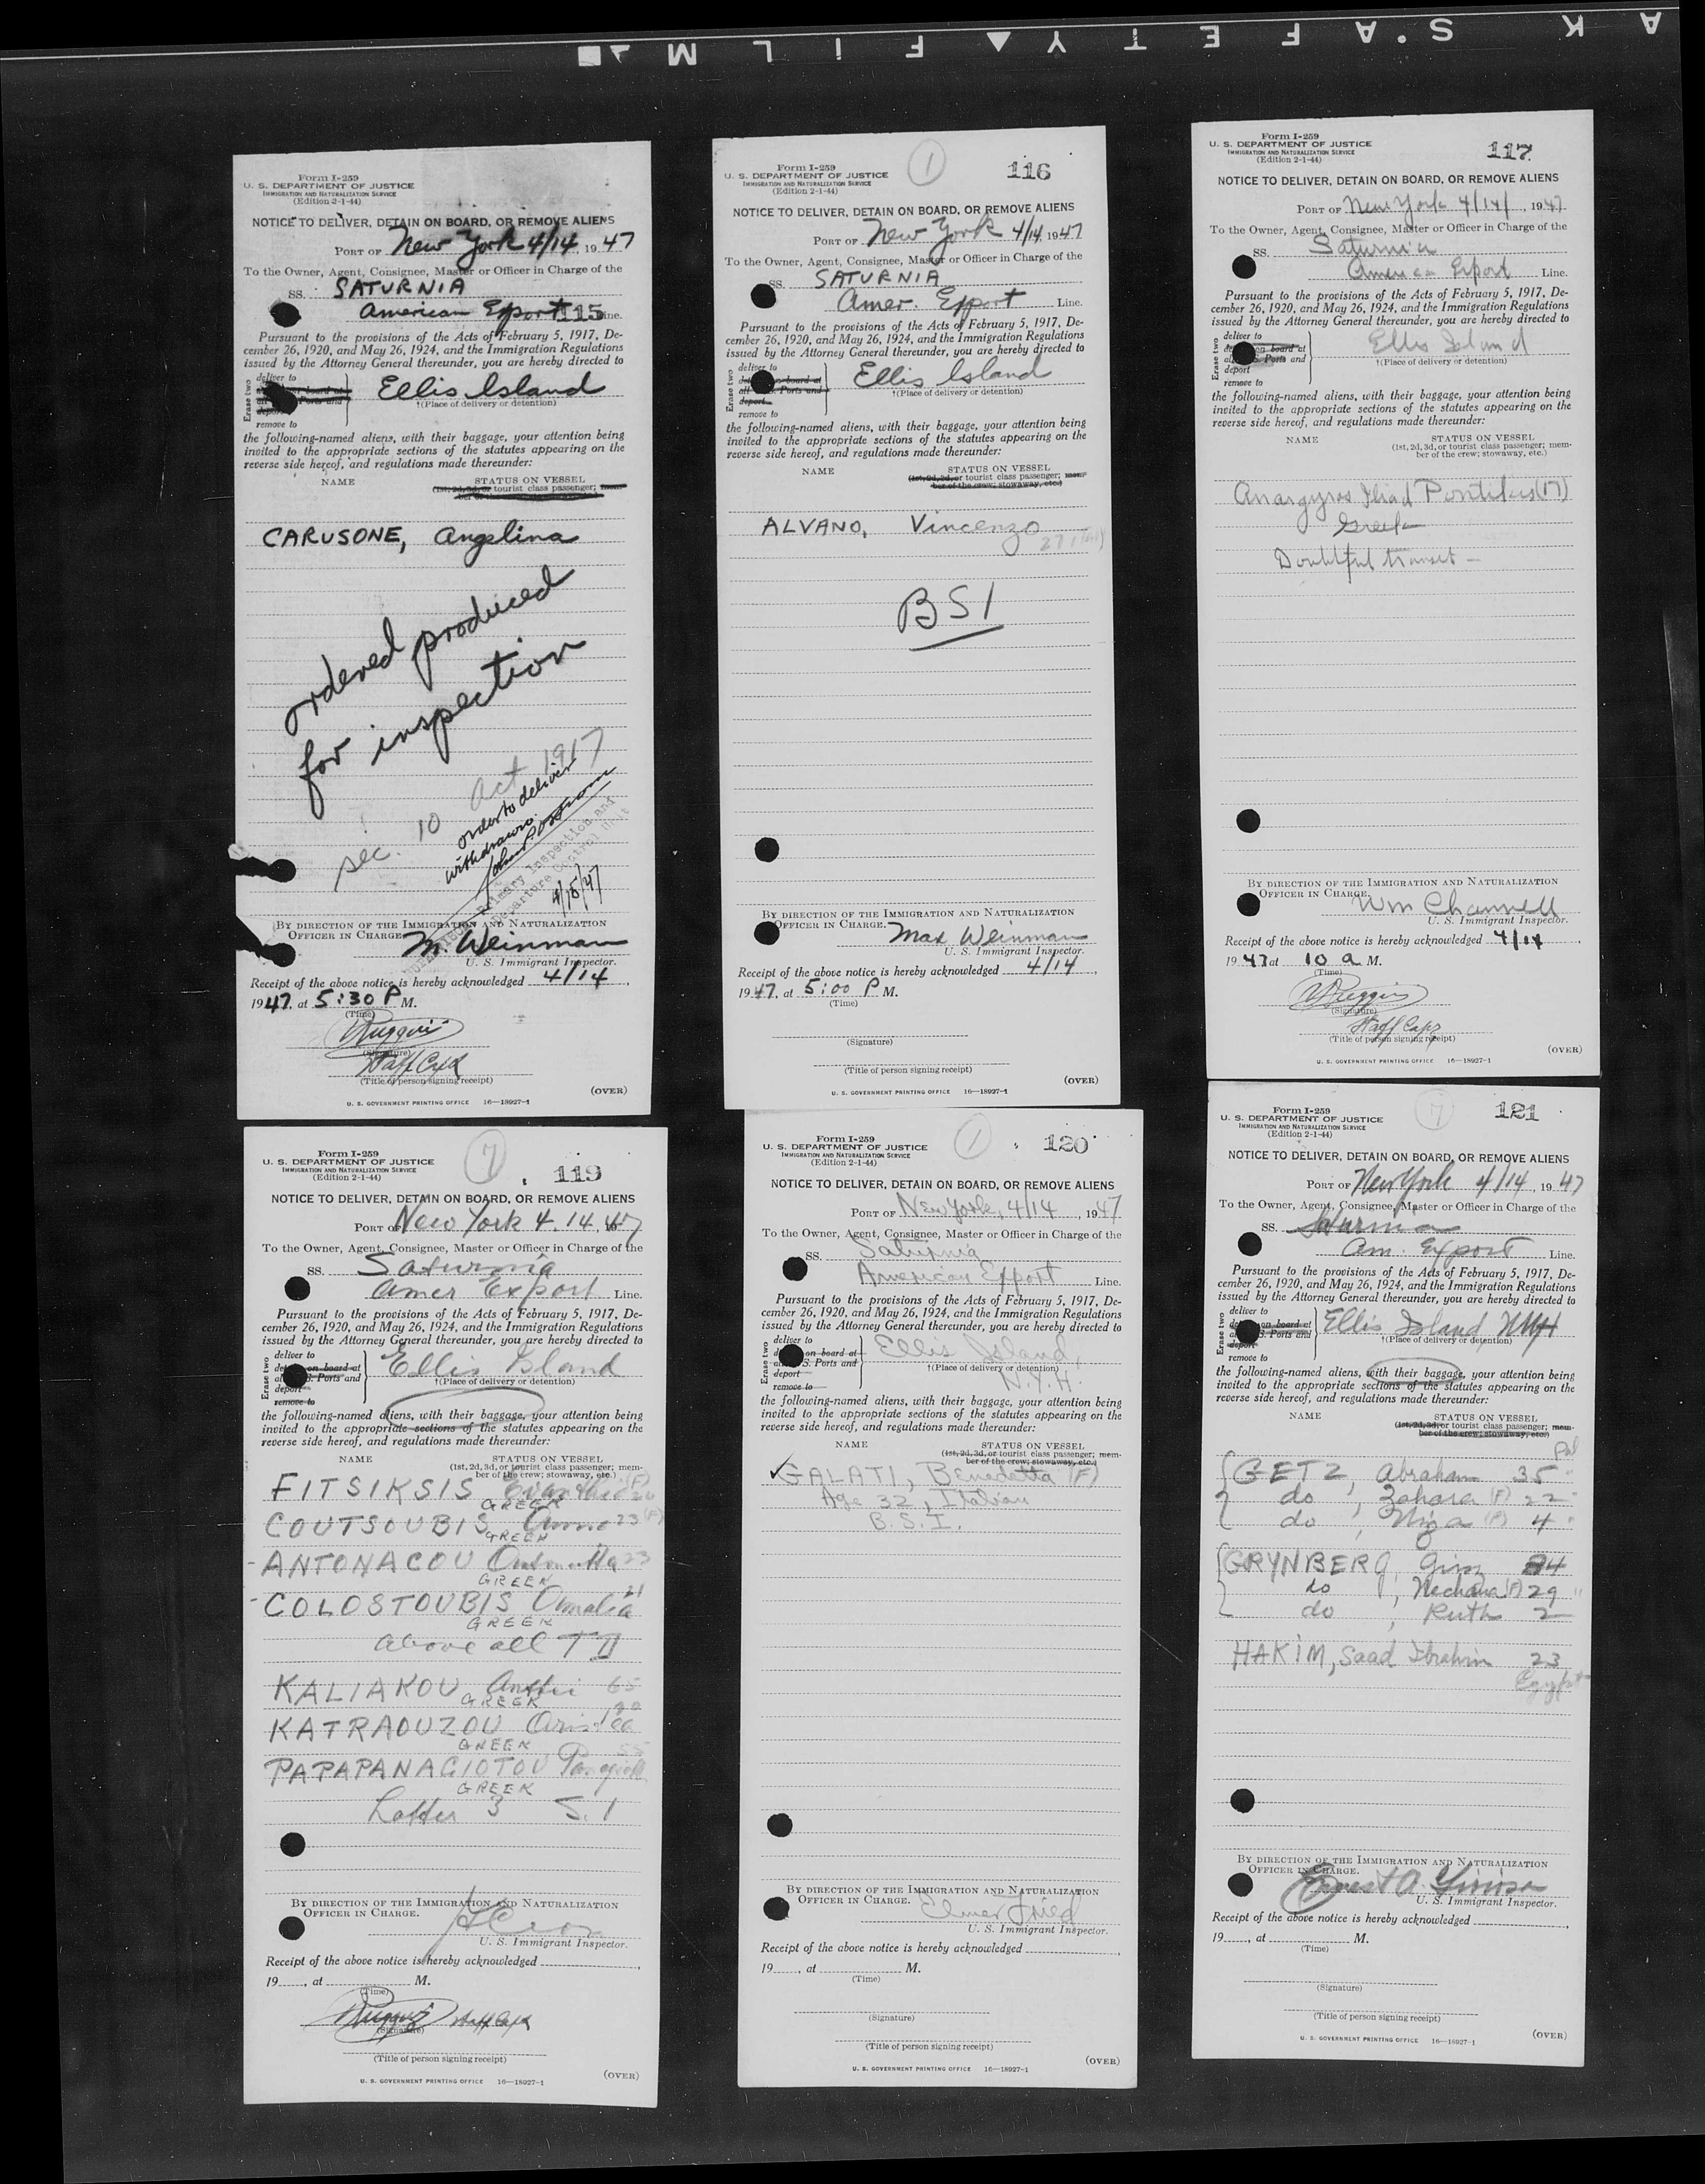 KA S'AFETY▲FILM
Form I-259
U. S. DEPARTMENT OF JUSTICE
IMMIGRATION AND NATURALIZATION SERVICE
(Edition 2-1-44)
NOTICE TO DELIVER, DETAIN ON BOARD, OR REMOVE ALIENS
PORT OF New York 4/14, 1947
To the Owner, Agent, Consignee, Master or Officer in Charge of the
SS. SATURNIA
American Export 115 Line.
Pursuant to the provisions of the Acts of February 5, 1917, De-
cember 26, 1920, and May 26, 1924, and the Immigration Regulations
issued by the Attorney General thereunder, you are hereby directed to
Erase two
deliver to
on board at
Ports and
deport
remove to
Ellis Island
†(Place of delivery or detention)
the following-named aliens, with their baggage, your attention being
invited to the appropriate sections of the statutes appearing on the
reverse side hereof, and regulations made thereunder:
NAME STATUS ON VESSEL
(1st, 2d, 3d, or tourist class passenger; mem-
ber of the
CARUSONE, Angelina
ordered produced
for inspection
sec. 10 Act 1917
order to deliver
withdrawn.
Primary Inspection and
Departure Control Unit
4/15/47
BY DIRECTION OF THE IMMIGRATION AND NATURALIZATION
OFFICER IN CHARGE.
M. Weinman
U. S. Immigrant Inspector.
Receipt of the above notice is hereby acknowledged 4/14
1947. at 5:30 P M.
(Time)
Ruggieri
(Signature)
Staff Capt
(Title of person signing receipt)
(OVER)
U. S. GOVERNMENT PRINTING OFFICE 16—18927-1
1 116
Form I-259
U. S. DEPARTMENT OF JUSTICE
IMMIGRATION AND NATURALIZATION SERVICE
(Edition 2-1-44)
NOTICE TO DELIVER, DETAIN ON BOARD, OR REMOVE ALIENS
PORT OF New York 4/14, 1947
To the Owner, Agent, Consignee, Master or Officer in Charge of the
SS. SATURNIA
Amer. Export Line.
Pursuant to the provisions of the Acts of February 5, 1917, De-
cember 26, 1920, and May 26, 1924, and the Immigration Regulations
issued by the Attorney General thereunder, you are hereby directed to
Erase two
deliver to
on board at
Ports and
deport
remove to
Ellis Island
†(Place of delivery or detention)
the following-named aliens, with their baggage, your attention being
invited to the appropriate sections of the statutes appearing on the
reverse side hereof, and regulations made thereunder:
NAME STATUS ON VESSEL
(1st, 2d, 3d, or tourist class passenger; mem-
ber of the crew; stowaway, etc.)
ALVANO, Vincenzo
27
BSI
BY DIRECTION OF THE IMMIGRATION AND NATURALIZATION
OFFICER IN CHARGE.
Max Weinman
U. S. Immigrant Inspector.
Receipt of the above notice is hereby acknowledged 4/14,
1947, at 5:00 P M.
(Time)
(Signature)
(Title of person signing receipt)
(OVER)
U. S. GOVERNMENT PRINTING OFFICE 16—18927-1
117
Form I-259
U. S. DEPARTMENT OF JUSTICE
IMMIGRATION AND NATURALIZATION SERVICE
(Edition 2-1-44)
NOTICE TO DELIVER, DETAIN ON BOARD, OR REMOVE ALIENS
PORT OF New York 4/14/, 1947
To the Owner, Agent, Consignee, Master or Officer in Charge of the
SS. Saturnia
American Export Line.
Pursuant to the provisions of the Acts of February 5, 1917, De-
cember 26, 1920, and May 26, 1924, and the Immigration Regulations
issued by the Attorney General thereunder, you are hereby directed to
Erase two
deliver to
on board at
Ports and
deport
remove to
Ellis Island
†(Place of delivery or detention)
the following-named aliens, with their baggage, your attention being
invited to the appropriate sections of the statutes appearing on the
reverse side hereof, and regulations made thereunder:
NAME STATUS ON VESSEL
(1st, 2d, 3d, or tourist class passenger; mem-
ber of the crew; stowaway, etc.)
Anargyros (17)
Greek
Doubtful transit -
BY DIRECTION OF THE IMMIGRATION AND NATURALIZATION
OFFICER IN CHARGE.
Wm Channell
U. S. Immigrant Inspector.
Receipt of the above notice is hereby acknowledged 4/14,
1947 at 10 a M.
(Time)
Ruggieri
(Signature)
Staff Capt
(Title of person signing receipt)
(OVER)
U. S. GOVERNMENT PRINTING OFFICE 16—18927-1
7 119
Form I-259
U. S. DEPARTMENT OF JUSTICE
IMMIGRATION AND NATURALIZATION SERVICE
(Edition 2-1-44)
NOTICE TO DELIVER, DETAIN ON BOARD, OR REMOVE ALIENS
PORT OF New York 4.14, 1947
To the Owner, Agent, Consignee, Master or Officer in Charge of the
SS. Saturnia
Amer Export Line.
Pursuant to the provisions of the Acts of February 5, 1917, De-
cember 26, 1920, and May 26, 1924, and the Immigration Regulations
issued by the Attorney General thereunder, you are hereby directed to
Erase two
deliver to
on board at
S. Ports and
deport
remove to
Ellis Island
†(Place of delivery or detention)
the following-named aliens, with their baggage, your attention being
invited to the appropriate sections of the statutes appearing on the
reverse side hereof, and regulations made thereunder:
NAME STATUS ON VESSEL
(1st, 2d, 3d, or tourist class passenger; mem-
ber of the crew; stowaway, etc.)
FITSIKSIS (F)
GREEK
COUTSOUBIS Anna 23 (F)
GREEK
- ANTONACOU 23
GREEK
- COLOSTOUBIS Amalia 21
GREEK
above all T II
KALIAKOU 65
GREEK
KATRAOUZOU
GREEK
PAPAPANAGIOTOU
GREEK
Latter 3 S.I
BY DIRECTION OF THE IMMIGRATION AND NATURALIZATION
OFFICER IN CHARGE.
U. S. Immigrant Inspector.
Receipt of the above notice is hereby acknowledged
19, at M.
(Time)
Ruggieri Staff Capt
(Signature)
(Title of person signing receipt)
(OVER)
U. S. GOVERNMENT PRINTING OFFICE 16—18927-1
1 120
Form I-259
U. S. DEPARTMENT OF JUSTICE
IMMIGRATION AND NATURALIZATION SERVICE
(Edition 2-1-44)
NOTICE TO DELIVER, DETAIN ON BOARD, OR REMOVE ALIENS
PORT OF New York, 4/14, 1947
To the Owner, Agent, Consignee, Master or Officer in Charge of the
SS. Saturnia
American Export Line.
Pursuant to the provisions of the Acts of February 5, 1917, De-
cember 26, 1920, and May 26, 1924, and the Immigration Regulations
issued by the Attorney General thereunder, you are hereby directed to
Erase two
deliver to
on board at
S. Ports and
deport
remove to
Ellis Island,
†(Place of delivery or detention)
N.Y.H.
the following-named aliens, with their baggage, your attention being
invited to the appropriate sections of the statutes appearing on the
reverse side hereof, and regulations made thereunder:
NAME STATUS ON VESSEL
(1st, 2d, 3d, or tourist class passenger; mem-
ber of the crew; stowaway, etc.)
✓GALATI, Benedetta (F)
Age 32, Italian
B.S.I.
BY DIRECTION OF THE IMMIGRATION AND NATURALIZATION
OFFICER IN CHARGE.
Elmer Fried
U. S. Immigrant Inspector.
Receipt of the above notice is hereby acknowledged
19, at M.
(Time)
(Signature)
(Title of person signing receipt)
(OVER)
U. S. GOVERNMENT PRINTING OFFICE 16—18927-1
7 121
Form I-259
U. S. DEPARTMENT OF JUSTICE
IMMIGRATION AND NATURALIZATION SERVICE
(Edition 2-1-44)
NOTICE TO DELIVER, DETAIN ON BOARD, OR REMOVE ALIENS
PORT OF New York 4/14, 1947
To the Owner, Agent, Consignee, Master or Officer in Charge of the
SS. Saturnia
Am. Export Line.
Pursuant to the provisions of the Acts of February 5, 1917, De-
cember 26, 1920, and May 26, 1924, and the Immigration Regulations
issued by the Attorney General thereunder, you are hereby directed to
Erase two
deliver to
on board at
S. Ports and
deport
remove to
Ellis Island NYH
†(Place of delivery or detention)
the following-named aliens, with their baggage, your attention being
invited to the appropriate sections of the statutes appearing on the
reverse side hereof, and regulations made thereunder:
NAME STATUS ON VESSEL
(1st, 2d, 3d, or tourist class passenger; mem-
ber of the crew; stowaway, etc.)
Pal
GETZ, Abraham 35 "
do, Zahara (F) 22 "
do, Niza (F) 4 "
GRYNBERG, 34
do, Nechama (F) 29 "
do, Ruth 2
HAKIM, Saad Ibrahim 23
Egypt
BY DIRECTION OF THE IMMIGRATION AND NATURALIZATION
OFFICER IN CHARGE.
Ernest A.
U. S. Immigrant Inspector.
Receipt of the above notice is hereby acknowledged
19, at M.
(Time)
(Signature)
(Title of person signing receipt)
(OVER)
U. S. GOVERNMENT PRINTING OFFICE 16—18927-1